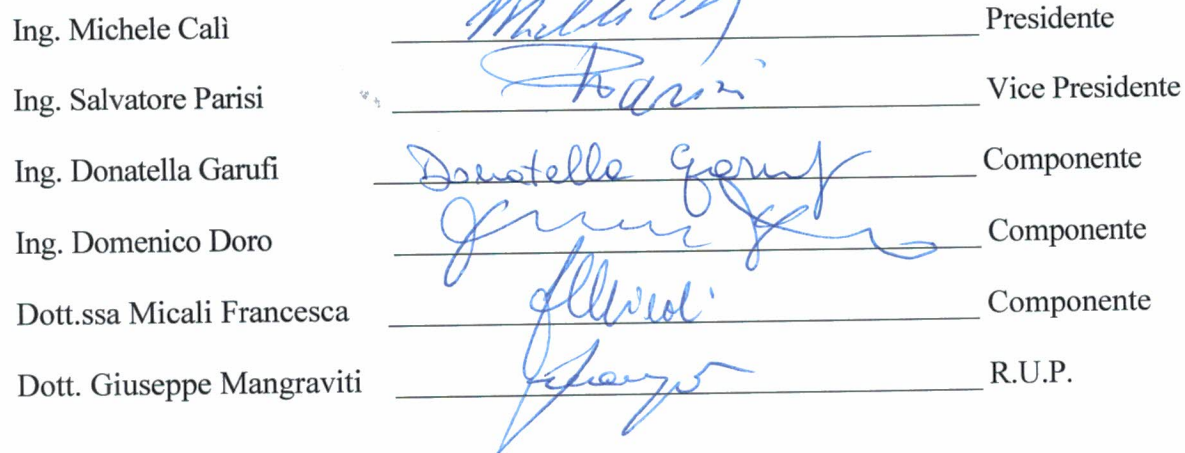 Ing. Michele Calì Presidente
Ing. Salvatore Parisi Parisi Vice Presidente
Ing. Donatella Garufi Donatella Garufi Componente
Ing. Domenico Doro Componente
Dott.ssa Micali Francesca Componente
Dott. Giuseppe Mangraviti R.U.P.